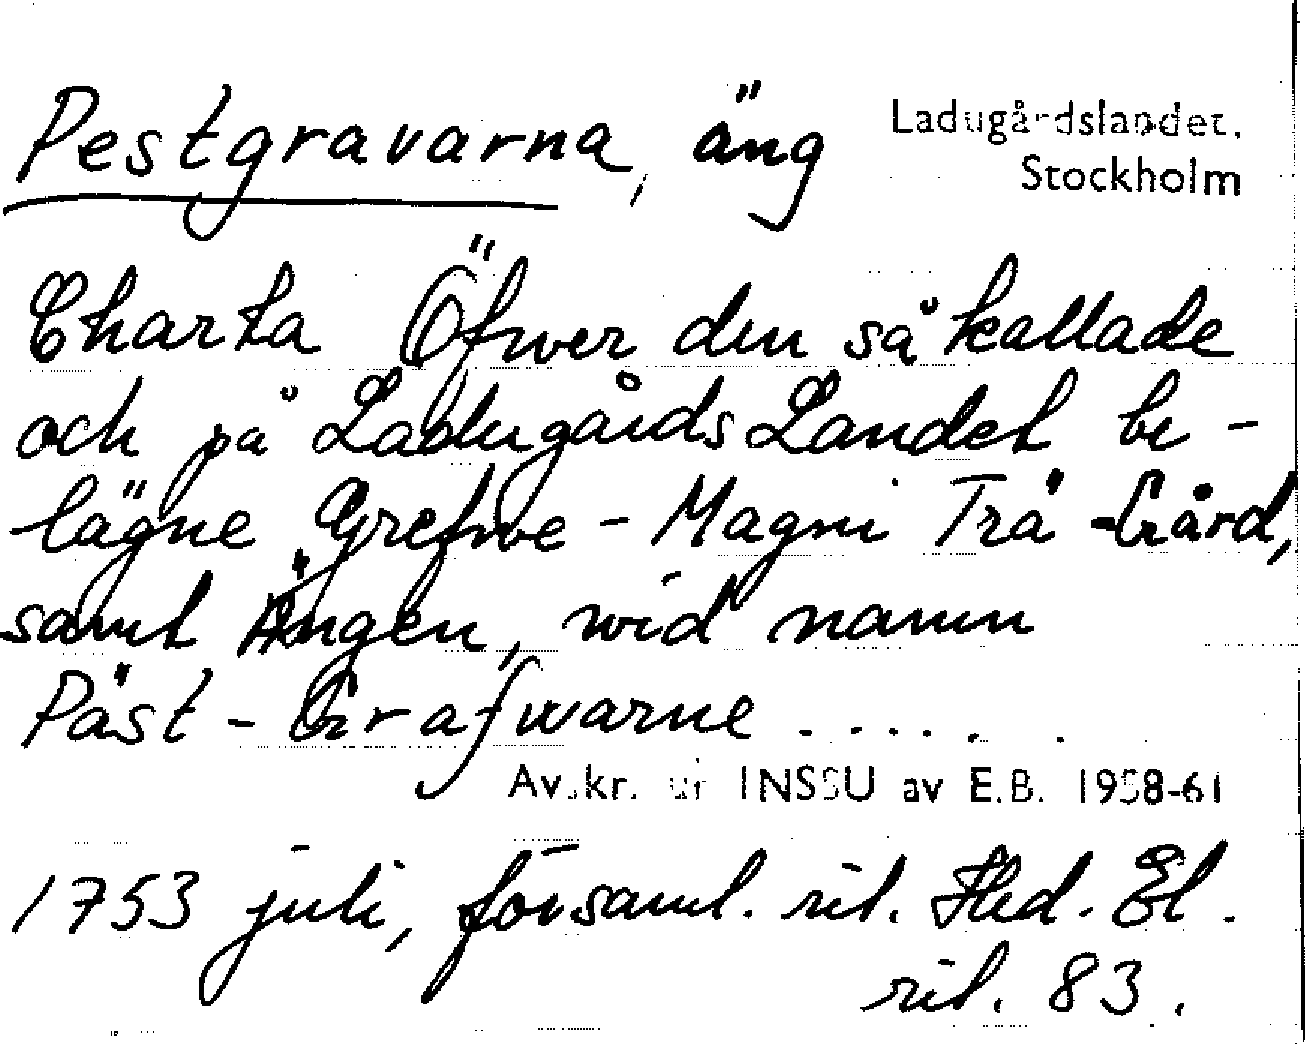 Pestgravarna, äng
Ladugårdslandet.
Stockholm
Charta Öfwer den så kallade
och på Ladugårds Landet be-
lägne Grefwe - Magni Trä -Gård,
samt Ängen, wid namn
Päst - Grafwarne . . . . . .
Avskr. ur INSSU av E.B. 1958-61
1753 juli, församl. rit. Hed. El.
rit. 83.